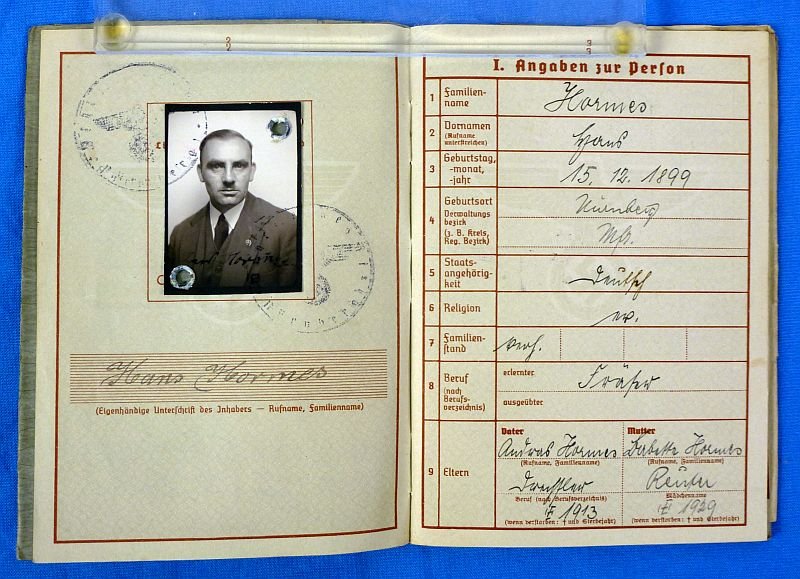 2
Hans Hormes
(Eigenhändige Unterschrift des Inhabers — Rufname, Familienname)
3
I. Angaben zur Person
1 Familien-
name
Hormes
2 Vornamen
(Rufname
unterstreichen)
Hans
3 Geburtstag,
-monat,
-jahr
15. 12. 1899
4 Geburtsort
Verwaltungs
bezirk
(z. B. Kreis,
Reg. Bezirk)
Nürnberg
Mfr.
5 Staats-
angehörig-
keit
Deutsch
6 Religion
ev.
7 Familien-
stand
verh.
8 Beruf
(nach
Berufs-
verzeichnis)
erlernter
Fräser
ausgeübter
9 Eltern
Vater
Andreas Hormes
(Rufname, Familienname)
Drechsler
Beruf (nach Berufsverzeichnis)
1913
(wenn verstorben: † und Sterbejahr)
Mutter
Babette Hormes
(Rufname, Familienname)
Reuter
Mädchenname
1929
(wenn verstorben: † und Sterbejahr)